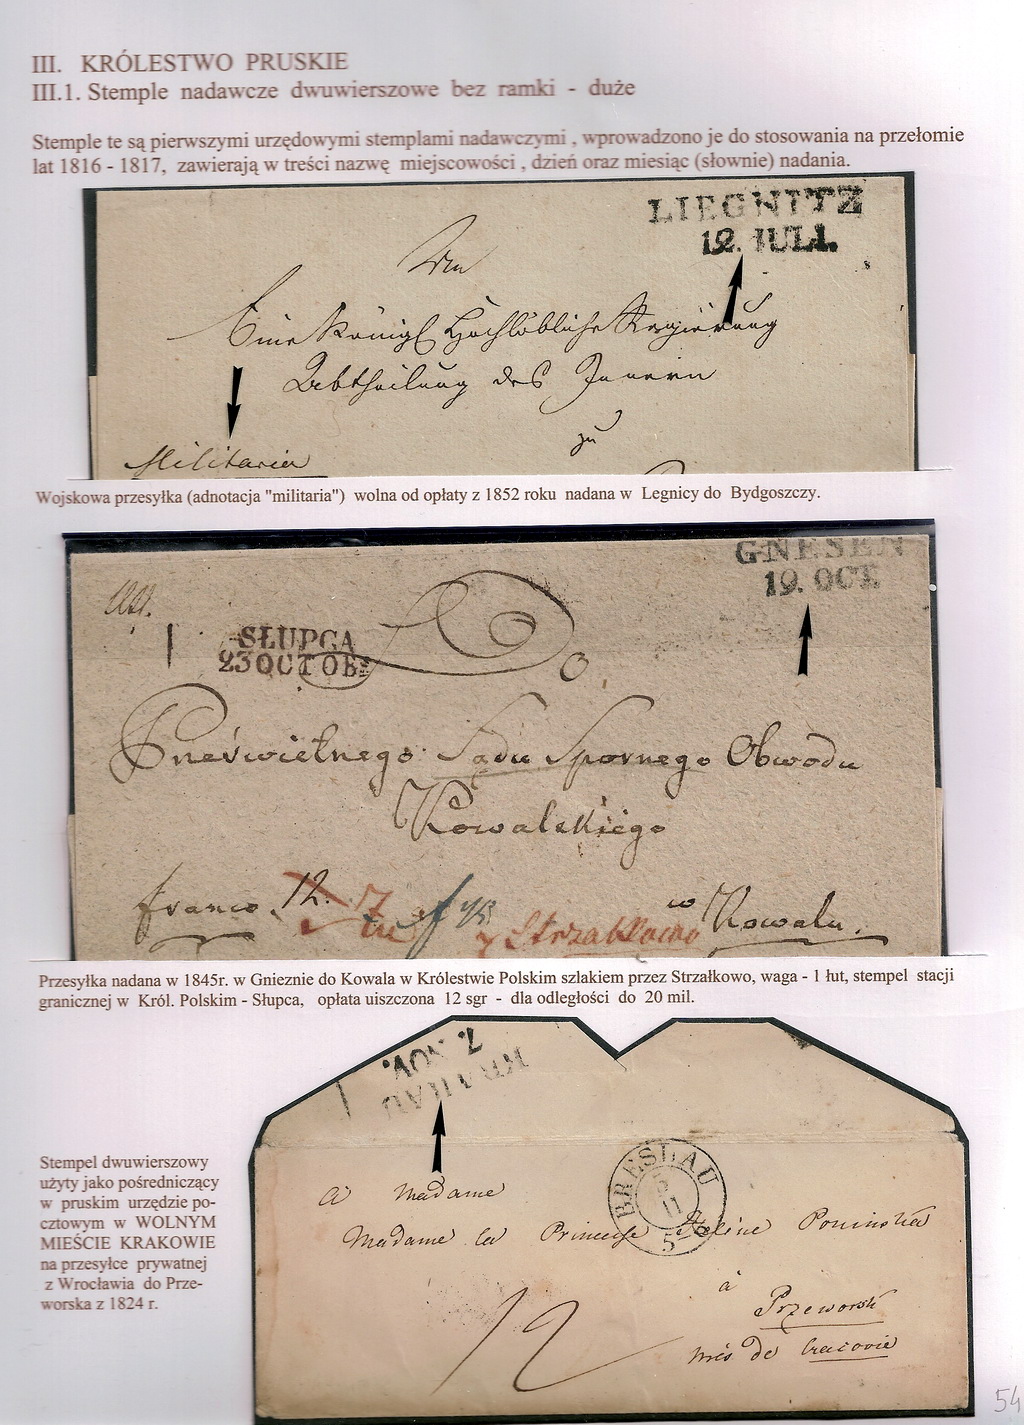 III. KRÓLESTWO PRUSKIE
III.1. Stemple nadawcze dwuwierszowe bez ramki - duże
Stemple te są pierwszymi urzędowymi stemplami nadawczymi , wprowadzono je do stosowania na przełomie
lat 1816 - 1817, zawierają w treści nazwę miejscowości , dzień oraz miesiąc (słownie) nadania.
LIEGNITZ
12. JULI.
An
Eine Königl Hochlöbliche Regierung
Abtheilung des Innern
zu
Militaria
Wojskowa przesyłka (adnotacja "militaria") wolna od opłaty z 1852 roku nadana w Legnicy do Bydgoszczy.
GNESEN
19. OCT.
SŁUPCA
23 OCTOB
Prześwietnego Sądu Spornego Obwodu
Kowalskiego
franco 12.
Strzałkowo
w Kowalu.
Przesyłka nadana w 1845r. w Gnieznie do Kowala w Królestwie Polskim szlakiem przez Strzałkowo, waga - 1 łut, stempel stacji
granicznej w Król. Polskim - Słupca, opłata uiszczona 12 sgr - dla odległości do 20 mil.
KRAKAU
7. NOV.
Stempel dwuwierszowy
użyty jako pośredniczący
w pruskim urzędzie po-
cztowym w WOLNYM
MIEŚCIE KRAKOWIE
na przesyłce prywatnej
z Wrocławia do Prze-
worska z 1824 r.
BRESLAU
a Madame
Madame la Princesse Hélène Ponińska
à
Przeworsk
près de Cracovie
12
54